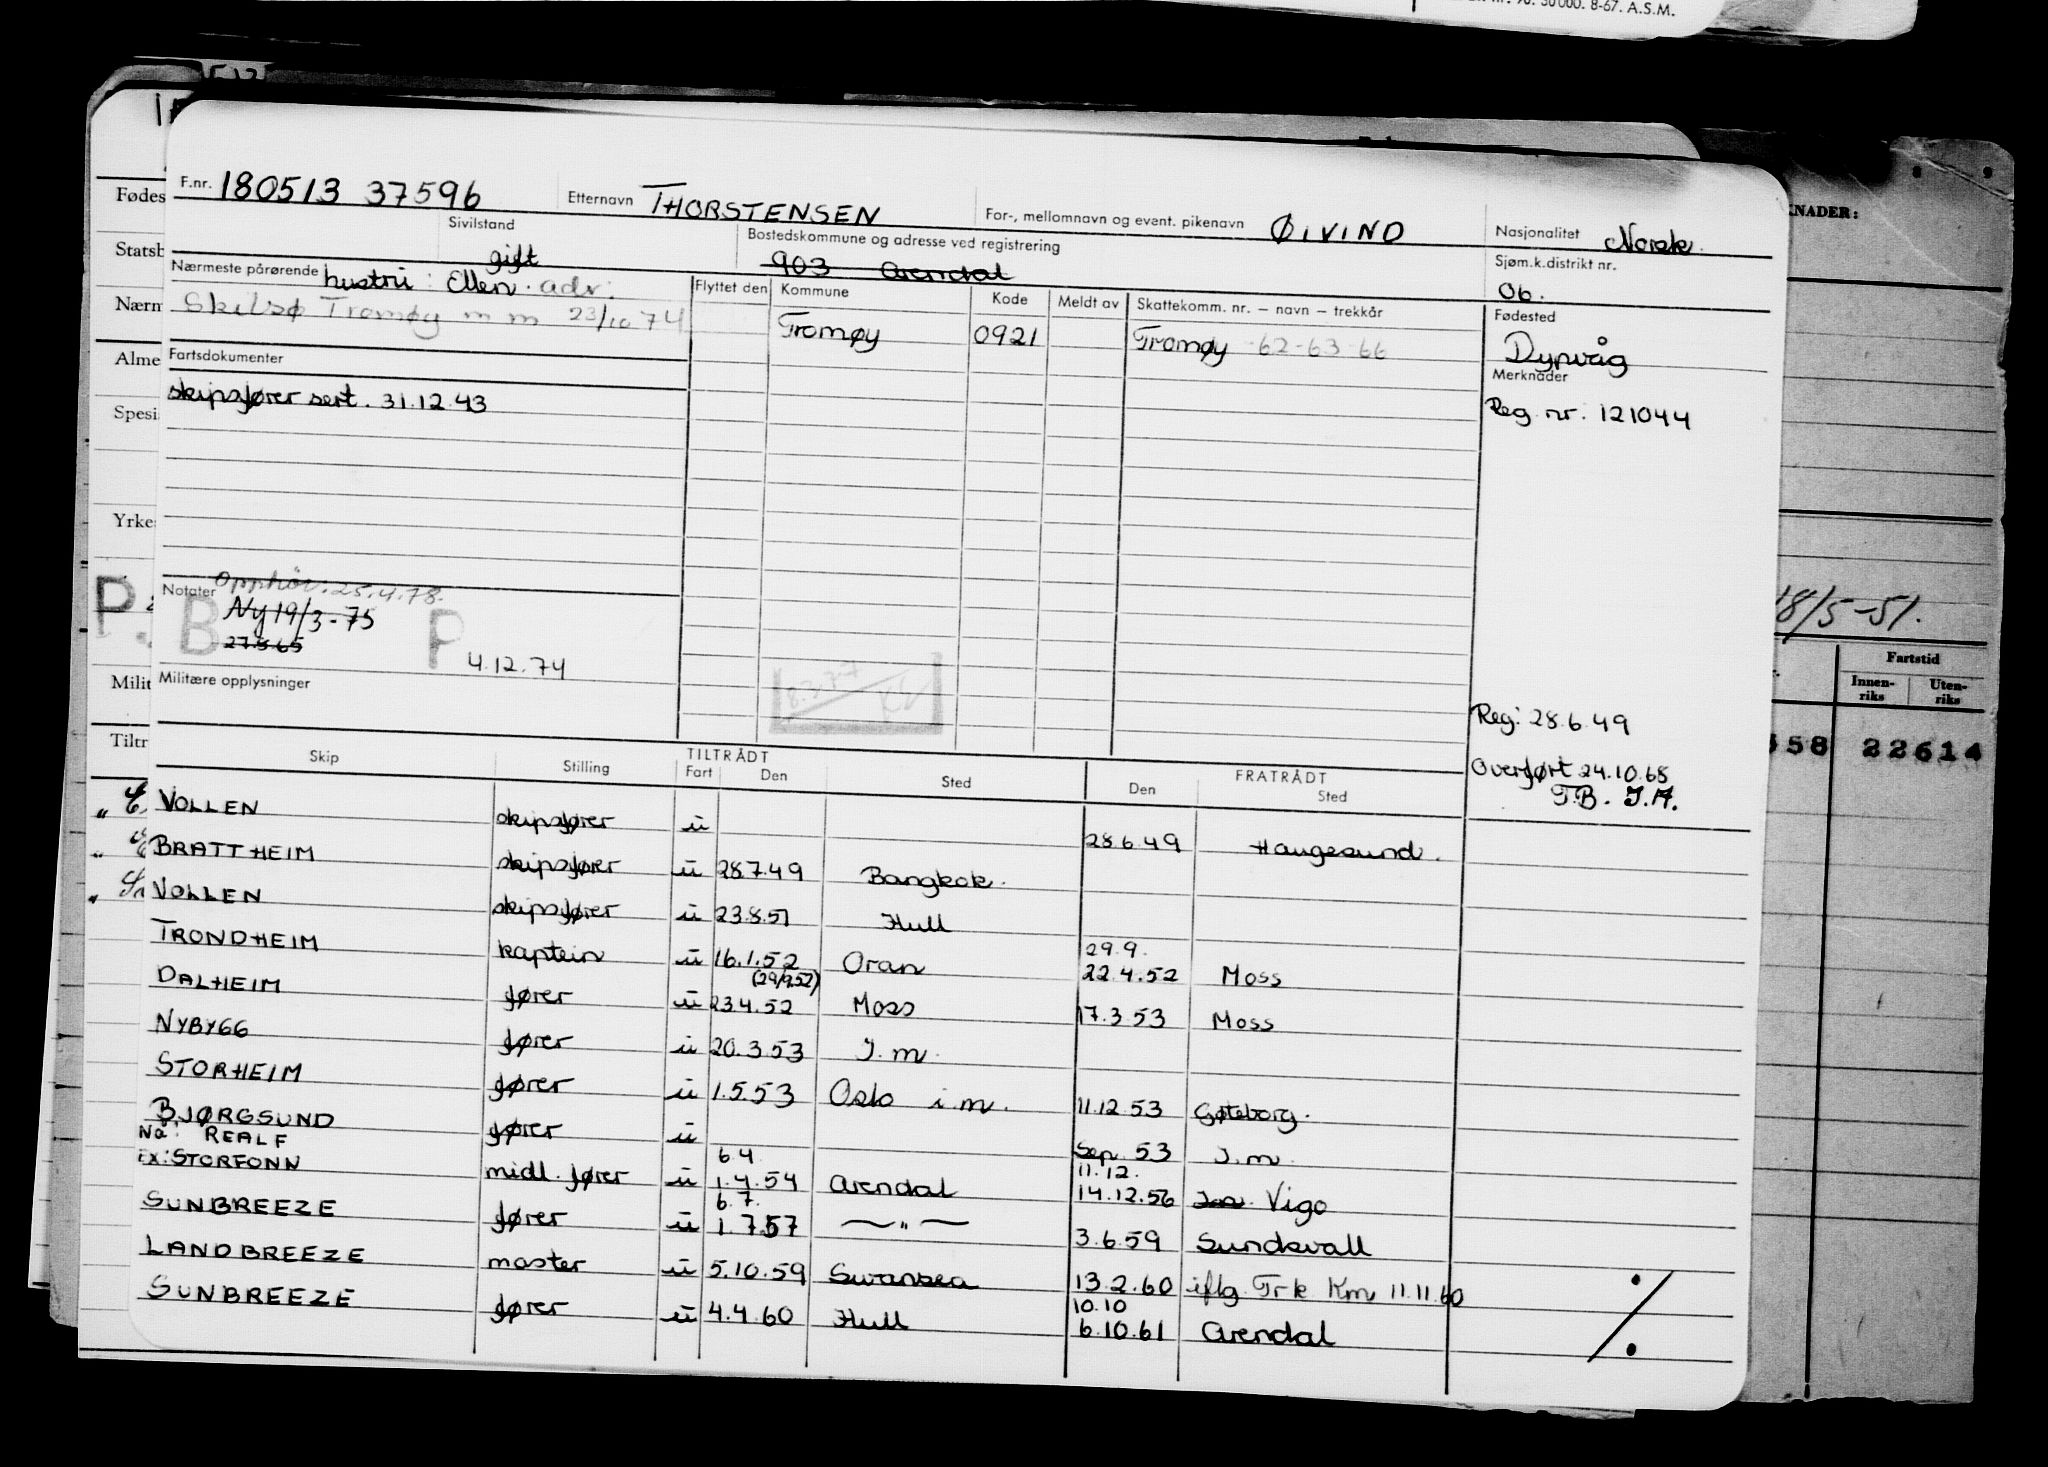 30000. 8-67. A.S.M.
F.nr. 180513 37596 Etternavn THORSTENSEN For-, mellomnavn og event. pikenavn ØIVIND Nasjonalitet Norsk.
Sivilstand gift Bostedskommune og adresse ved registrering 903 Arendal Sjøm.k.distrikt nr. 06.
Nærmeste pårørende hustru: Ellen. adr:
Skilsø Tromøy m m 23/10 74
Flyttet den Kommune Kode Meldt av Skattekomm. nr. – navn – trekkår Fødested
Tromøy 0921 Tromøy -62-63-66 Dypvåg
Fartsdokumenter Merknader
skipsfører sert. 31.12.43 Reg. nr: 121044
Notater Opphør: 25.4.78.
B Ny 19/3-75 P
27.5.65 4.12.74
Militære opplysninger
8.3.77
Reg: 28.6.49
Overført 24.10.68
T.B. J.A.
TILTRÅDT FRATRÅDT
Skip Stilling Fart Den Sted Den Sted
VOLLEN skipsfører u 28.6.49 Haugesund.
BRATTHEIM skipsfører u 28.7.49 Bangkok.
VOLLEN skipsfører u 23.8.51 Hull
TRONDHEIM kaptein u 16.1.52 (29/9.52) Oran 29.9. 22.4.52 Moss
DALHEIM fører u 23.4.52 Moss 17.3.53 Moss
NYBYGG fører u 20.3.53 I.m.
STORHEIM fører u 1.5.53 Oslo i.m. 11.12.53 Gøteborg.
BJØRGSUND fører u Sep. 53 I.m.
Nå: REALF
Ex: STORFONN midl. fører u 6.4. 1.4.54 Arendal 11.12. 14.12.56 Vigo
SUNBREEZE fører u 6.7. 1.7.57 —„— 3.6.59 Sundsvall
LANDBREEZE master u 5.10.59 Swansea 13.2.60 iflg. Trk Km 11.11.60
SUNBREEZE fører u 4.4.60 Hull 10.10 6.10.61 Arendal
Fødes
Statsb
Nærm
Alme
Spesi
Yrke
P.
Milit
Tiltr
KNADER:
18/5-51.
Fartstid
Innen-riks Uten-riks
558 22614